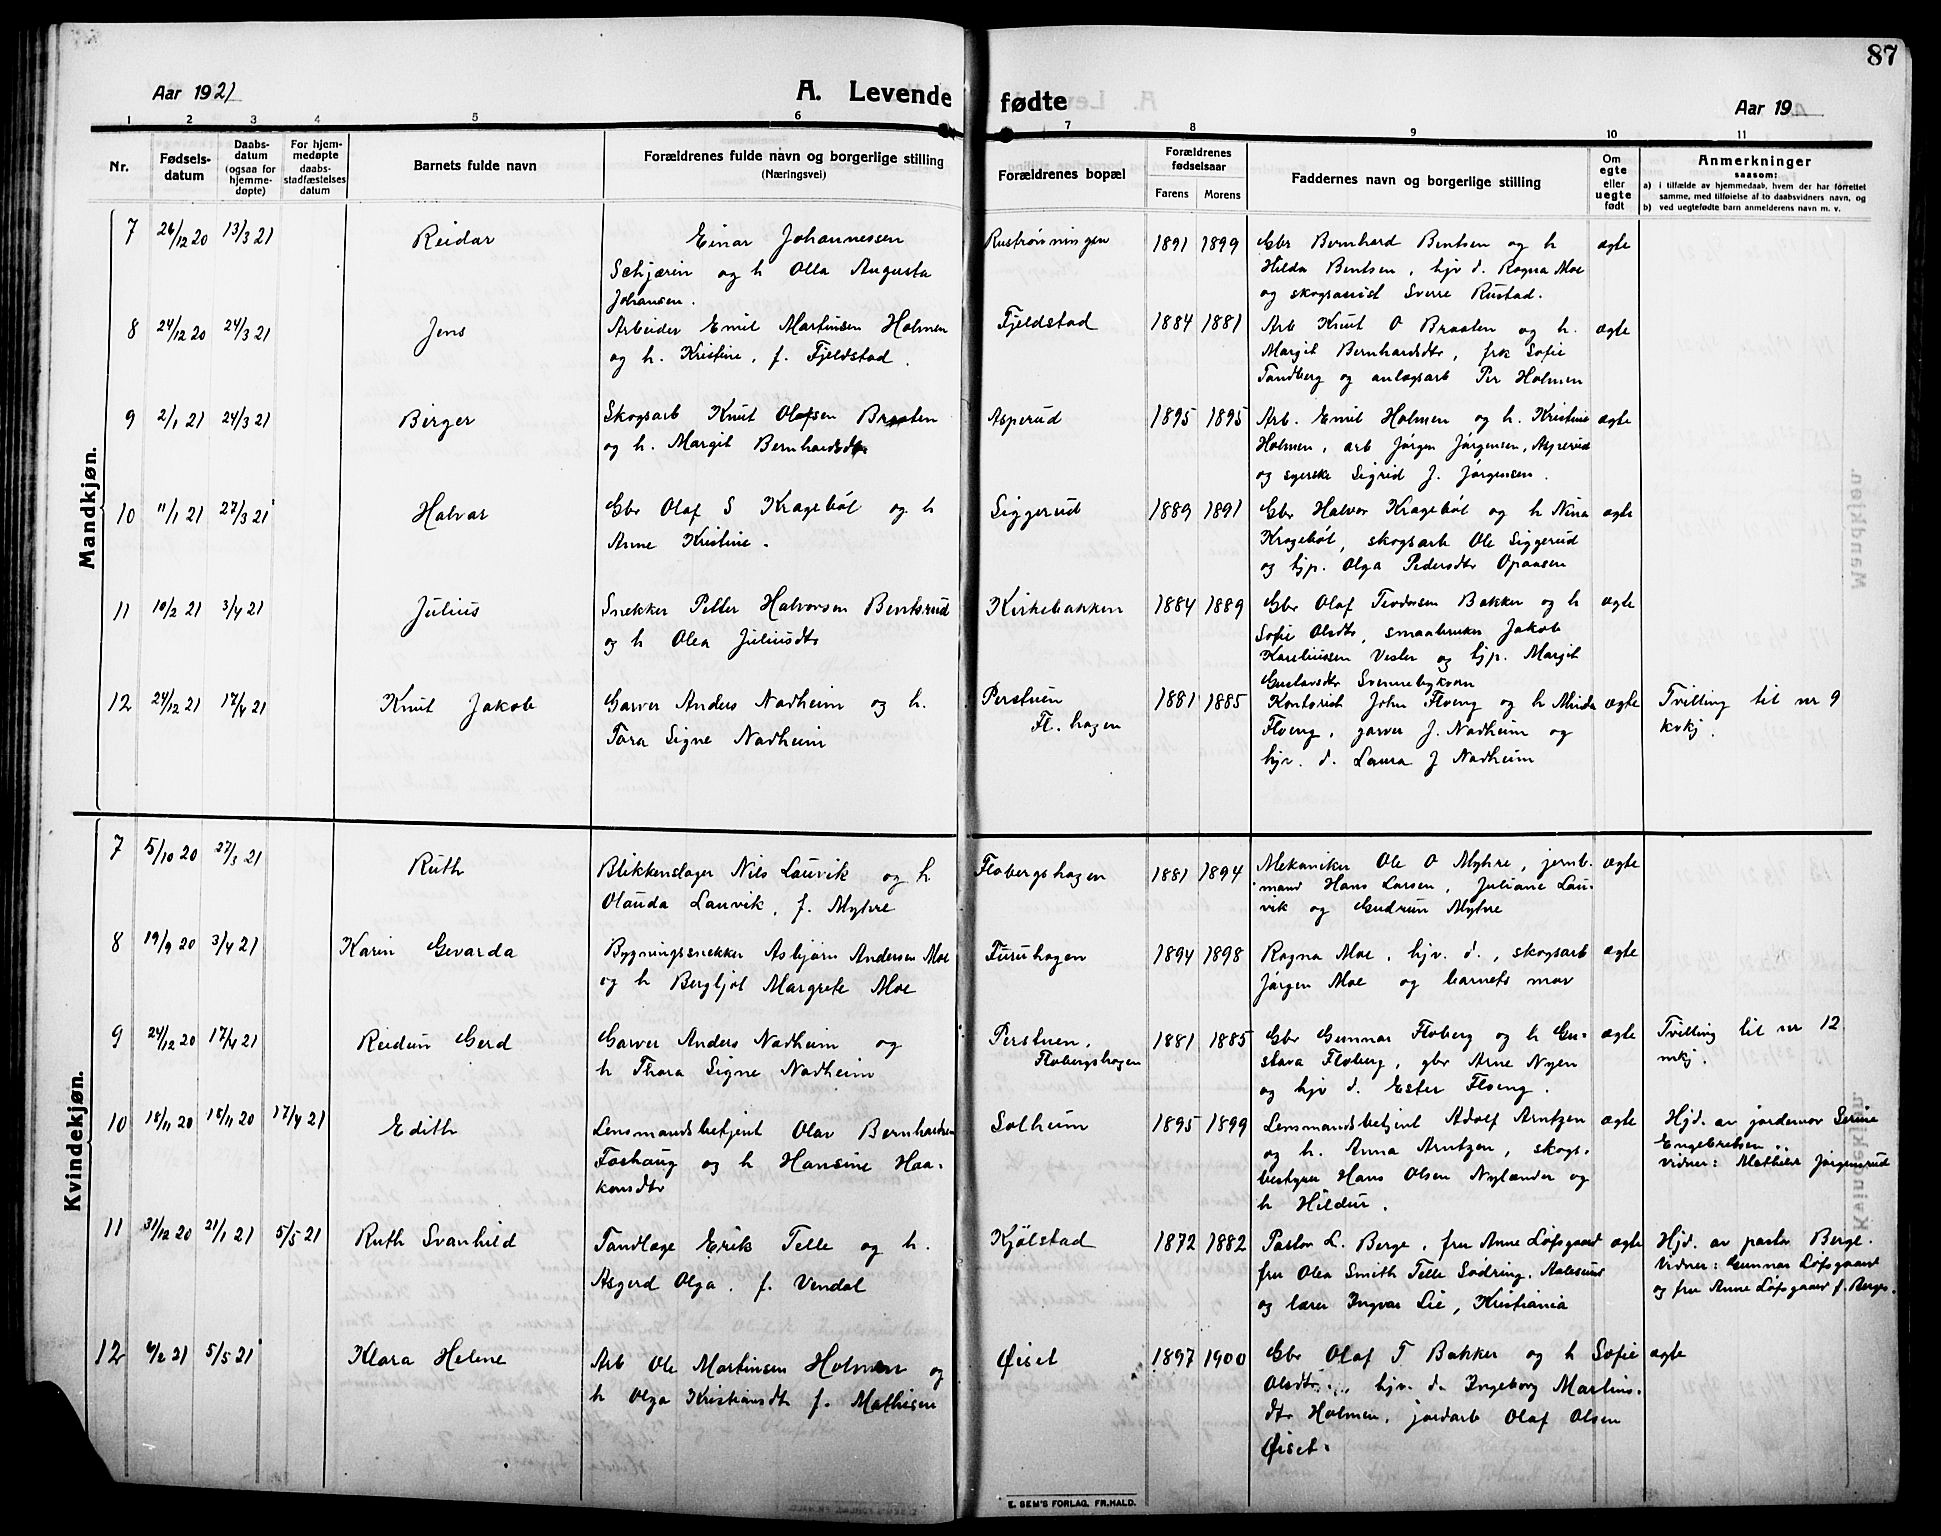 87
Aar 1921
A. Levende fødte
Aar 19
1 2 3 4 5 6 7 8 9 10 11
Nr.
Fødsels-
datum
Daabs-
datum
(ogsaa for
hjemme-
døpte)
For hjem-
medøpte
daabs-
stadfæstelses
datum
Barnets fulde navn
Forældrenes fulde navn og borgerlige stilling
(Næringsvei)
Forældrenes bopæl
Forældrenes
fødselsaar
Farens Morens
Faddernes navn og borgerlige stilling
Om
egte
eller
uegte
født
Anmerkninger
saasom:
a) i tilfælde av hjemmedaab, hvem der har forrettet
samme, med tilføielse af to daabsvidners navn, og
b) ved uegtefødte barn anmelderens navn m. v.
Mandkjøn.
7 26/12 20 13/3 21 Reidar Einar Johannessen Rustrønningen 1891 1899 Gbr Bernhard Bentsen og h ægte
Schjærin og h Olla Augusta Hilda Bentsen, hjv d. Ragna Moe
Johansen. og skogsarist Sverre Rustad.
8 24/12 20 24/3 21 Jens Arbeider Emil Martinsen Holmen Fjeldstad 1884 1881 Arb Knut O Braaten og h. ægte
og h. Kristine, f. Fjeldstad. Margit Bernhardsdtr, frk Sofie
Tandberg og anlægsarb Per Holmen
9 2/1 21 24/3 21 Birger Skogsarb Knut Olafsen Braaten Asperud 1895 1895 Arb. Emil Holmen og h. Kristine ægte
og h. Margit Bernhardsdtr Holmen, arb Jørgen Jørgensen, Asperud
og syerske Sigrid J. Jørgensen.
10 11/1 21 27/3 21 Halvar Gbr Olaf S Kragebøl og h Siggerud 1889 1891 Gbr Halvor Kragebøl og h Nina ægte
Anne Kristine. Kragebøl, skogsarb Ole Siggerud
og hjp. Olga Pedersdtr Opaasen
11 10/2 21 3/4 21 Julius Snekker Petter Halvorsen Bentsrud Kirkebakken 1884 1889 Gbr Olaf Teodorsen Bakker og h ægte
og h Olea Juliusdtr Sofie Olsdtr, smaabruker Jakob
Kareliussen Vesler og hjp. Margit
Gustavsdtr Svennebykvern
12 24/12 21 17/4 21 Knut Jakob Garver Anders Nadheim og h. Perstuen 1881 1885 Kontorist John Floeng og h Minda ægte Tvilling til nr 9
Tora Signe Nadheim Fl. hagen Floeng, garver J. Nadheim og kvkj.
hjv. d. Laura J Nadheim
Kvindekjøn.
7 5/10 20 27/3 21 Ruth Blikkenslager Nils Lauvik og h Flobergshagen 1881 1894 Mekaniker Ole O Myhre, jernb. ægte
Olauda Lauvik, f. Myhre mand Hans Larsen, Juliane Lau-
vik og Gudrun Myhre
8 19/9 20 3/4 21 Karin Gevarda Bygningssnekker Asbjørn Andersen Moe Furuhagen 1894 1898 Ragna Moe, hjv. d., skogsarb ægte
og h Bergljot Margrete Moe Jørgen Moe og barnets mor
9 24/12 20 17/4 21 Reidun Gerd Garver Anders Nadheim og Perstuen, 1881 1885 Gbr Gunnar Floberg og h Gu- ægte Tvilling til nr 12
h Thora Signe Nadheim Flobergshagen stava Floberg, gbr Arne Nyen mkj.
og hjv d. Ester Floeng.
10 18/11 20 18/11 20 17/4 21 Edith Lensmandsbetjent Olav Bernhardsen Solheim 1895 1899 Lensmandsbetjent Adolf Arntzen ægte Hjd. av jordmor Serine
Foshaug og h Hansine Haa- og h. Anna Arntzen, skogs- Engebretsen.
konsdtr bestyrer Hans Olsen Nylænder og Vidner: Mathilde Jørgensrud
h Hildur.
11 31/12 20 21/1 21 5/5 21 Ruth Svanhild Tandlæge Erik Telle og h. Kjølstad 1872 1882 Pastor L. Berge, fru Anne Løfsgaard ægte Hjd. av pastor Berge.
Asgerd Olga, f. Vendal fru Olea Smith Telle Sødring, Aalesund Vidner: Gunnar Løfsgaard
og lærer Ingvar Lie, Kristiania og fru Anne Løfsgaard f. Berge.
12 6/2 21 5/5 21 Klara Helene Arb Ole Martinsen Holmen og Øiset 1897 1900 Gbr Olaf T Bakker og h Sofie ægte
h Olga Kristiansdtr f. Mathisen Olsdtr, hjv. d. Ingeborg Martins-
dtr Holmen, jordarb Olaf Olsen
Øiset.
E. SEM'S FORLAG, FR.HALD.